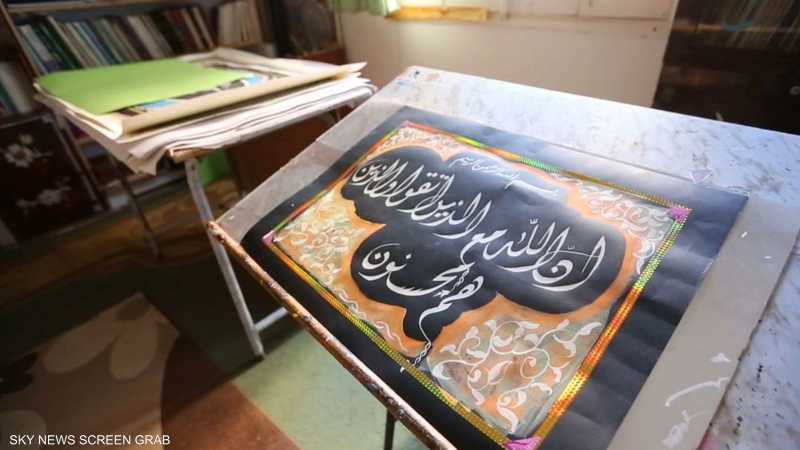 بسم الله الرحمن الرحيم
ان الله مع الذين اتقوا والذين
هم محسنون
SKY NEWS SCREEN GRAB